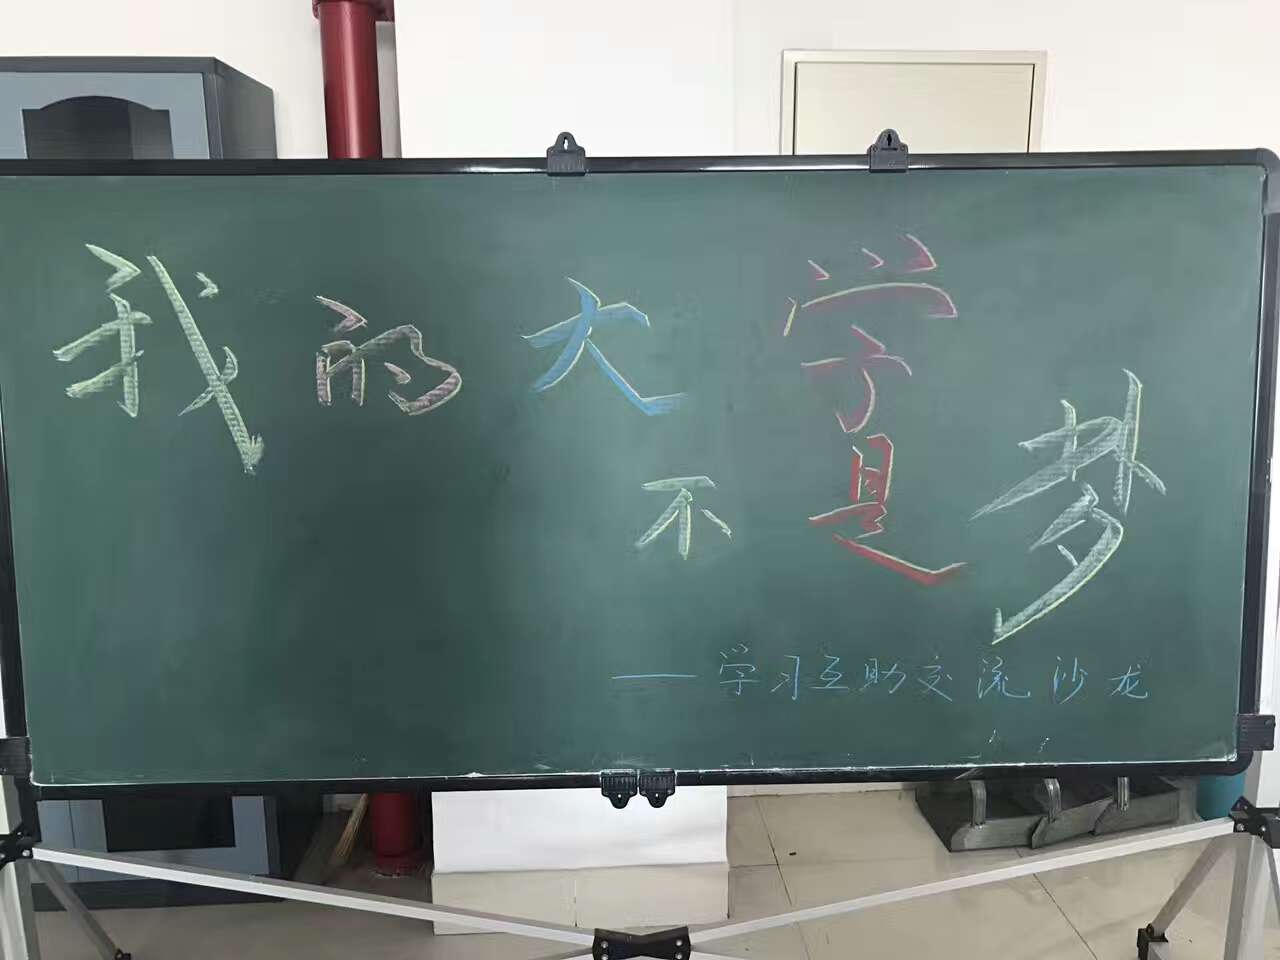 我的大学
不是梦
——学习互助交流沙龙